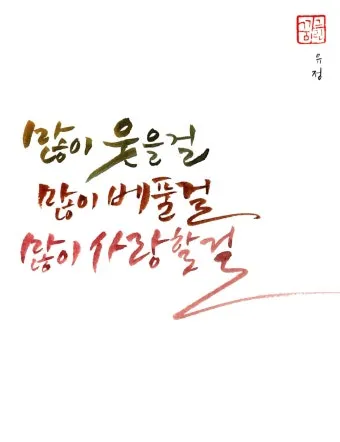 유정
많이 웃을걸
많이 베풀걸
많이 사랑할걸